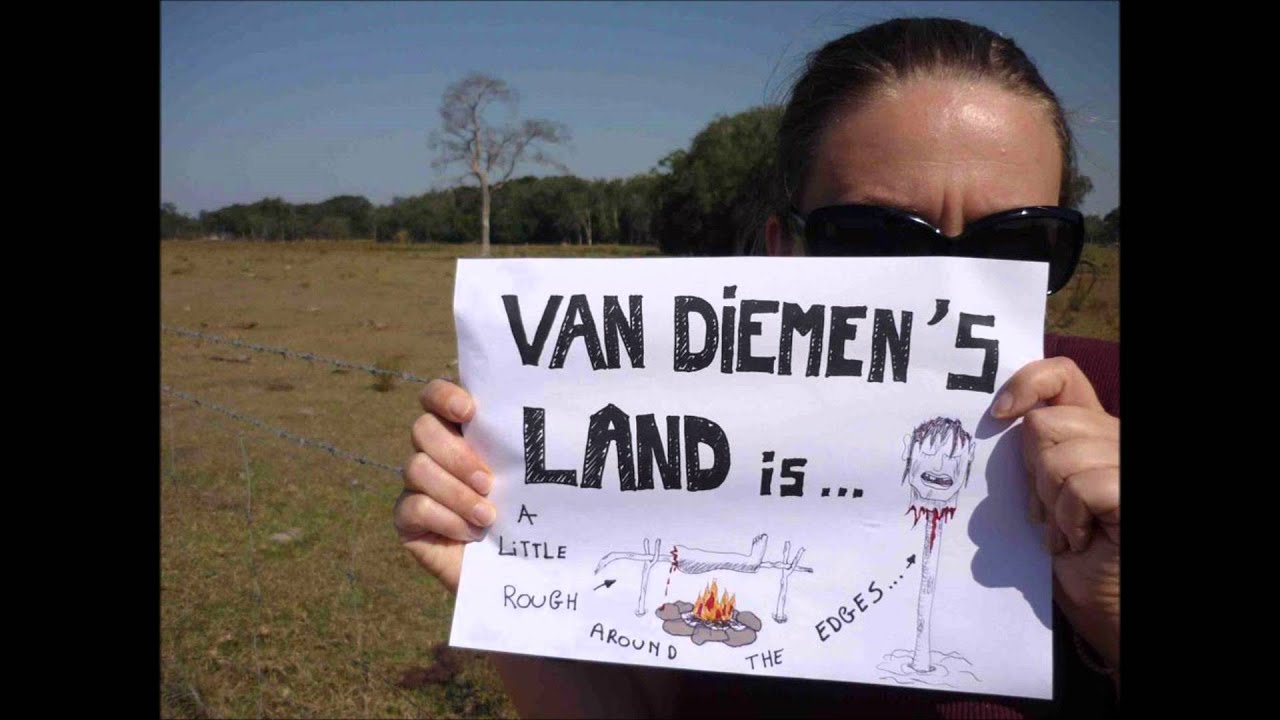 VAN DiEMEN'S
LAND is...
A
LiTTLE
ROUGH
AROUND THE EDGES...